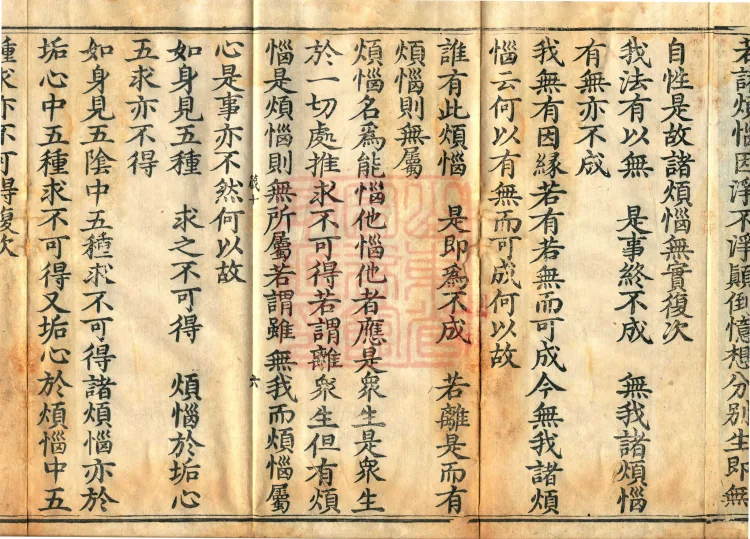 若說煩惱因淨不淨顛倒憶想分別生即無
自性是故諸煩惱無實復次
我法有以無　是事終不成　無我諸煩惱
有無亦不成
我無有因緣若有若無而可成今無我諸煩
惱云何以有無而可成何以故
誰有此煩惱　是即為不成　若離是而有
煩惱則無屬
煩惱名為能惱他惱他者應是眾生是眾生
於一切處推求不可得若謂離眾生但有煩
惱是煩惱則無所屬若謂雖無我而煩惱屬
六
心是事亦不然何以故
如身見五種　求之不可得　煩惱於垢心
五求亦不得
如身見五陰中五種求不可得諸煩惱亦於
垢心中五種求不可得又垢心於煩惱中五
種求亦不可得復次